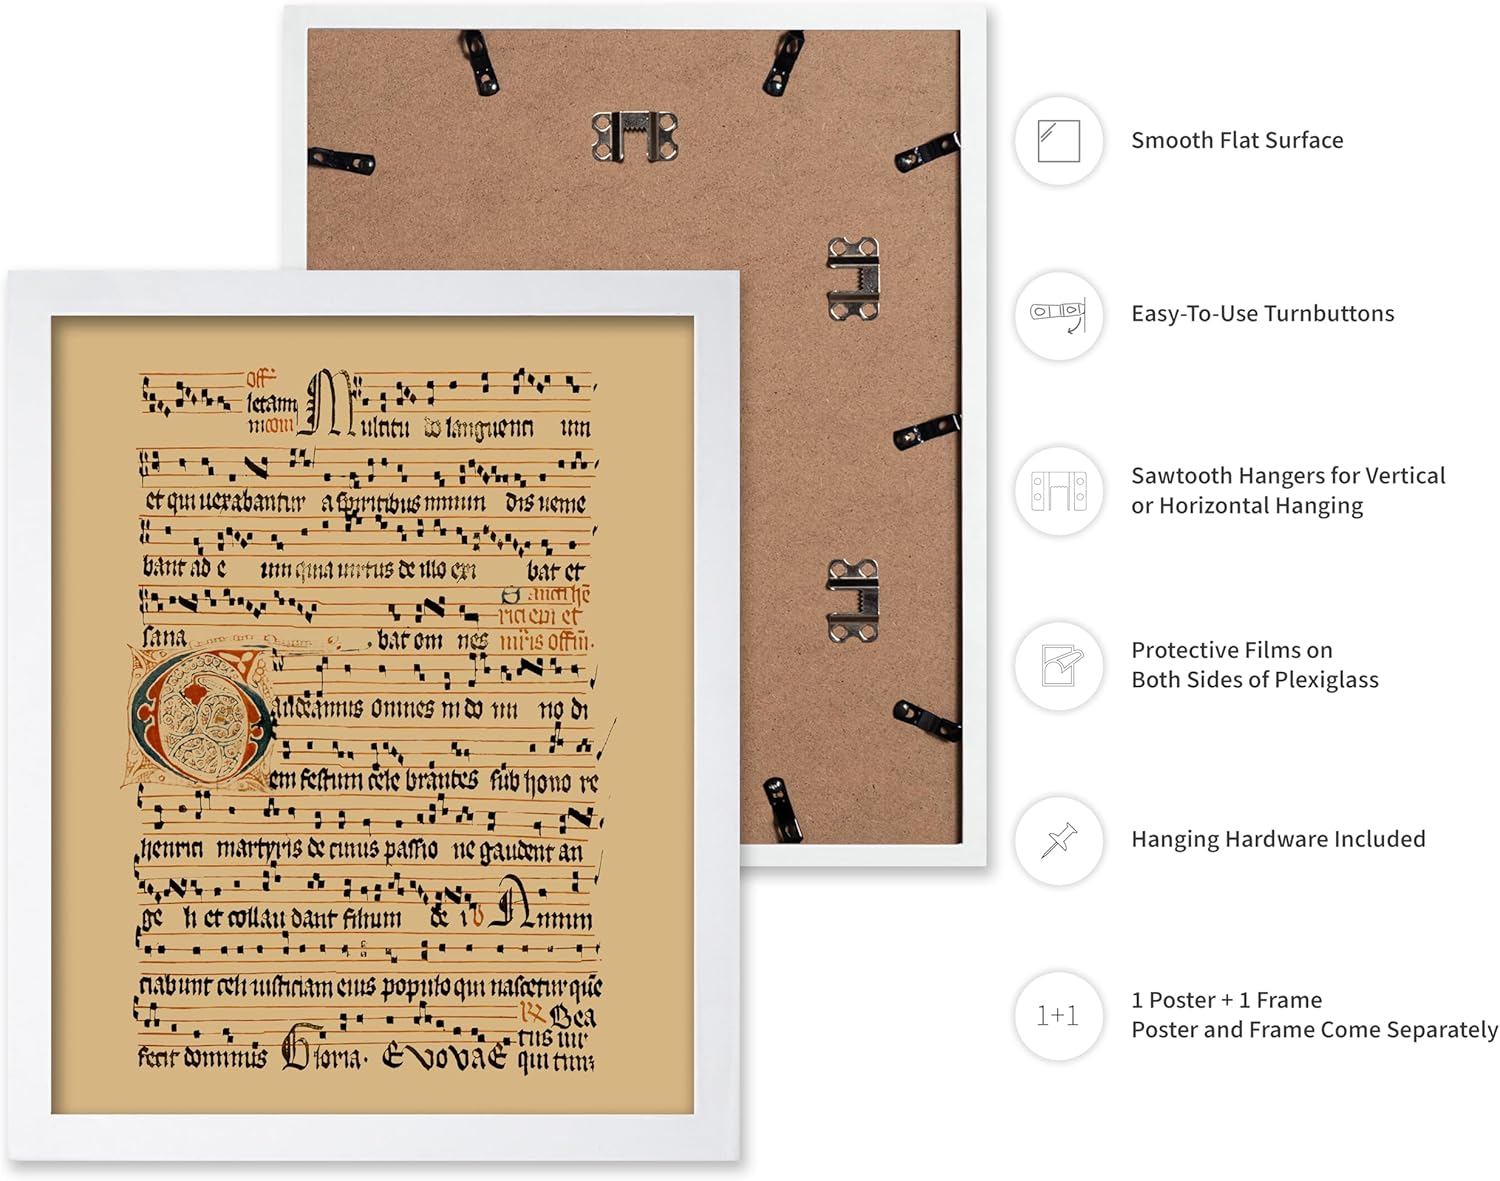 off
letann
mcom
Multitu do languenti um
et qui uexabantur a spiritibus immun dis ueme
bant ad e um quia uirtus de illo exi bat et
sana bat om nes
sancti he
rici epi et
mris offm.
Gaudeamus omnes in do mi no di
em festum cele brantes sub hono re
henrici martyris de cuius passio ne gaudent an
ge li et collau dant filium de i V Annun
ciabunt celi iusticiam eius populo qui nascetur que
fecit dominus Gloria. EVOVAE
Bea
tus uir
qui tim
Smooth Flat Surface
Easy-To-Use Turnbuttons
Sawtooth Hangers for Vertical
or Horizontal Hanging
Protective Films on
Both Sides of Plexiglass
Hanging Hardware Included
1+1
1 Poster + 1 Frame
Poster and Frame Come Separately